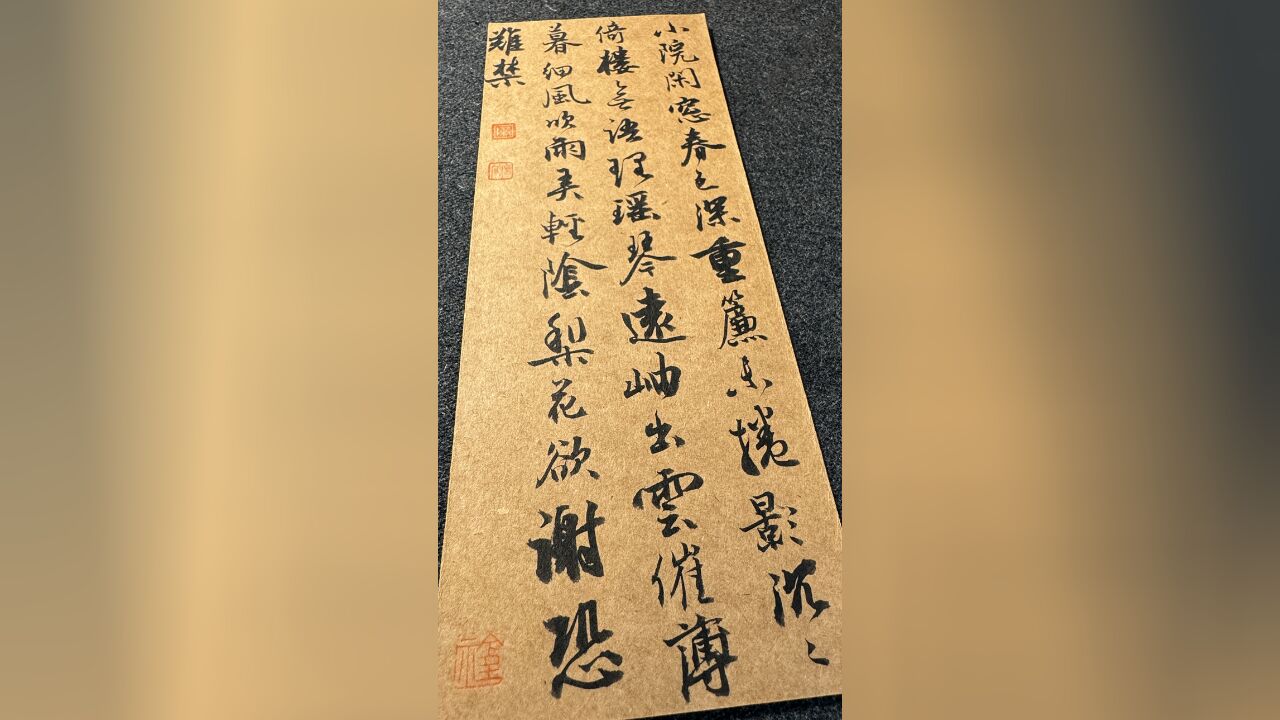 小院闲窓春已深重簾未捲影沉〻
倚楼无语理瑶琴遠岫出雲催薄
暮细風吹雨弄輕陰梨花欲謝恐
難禁